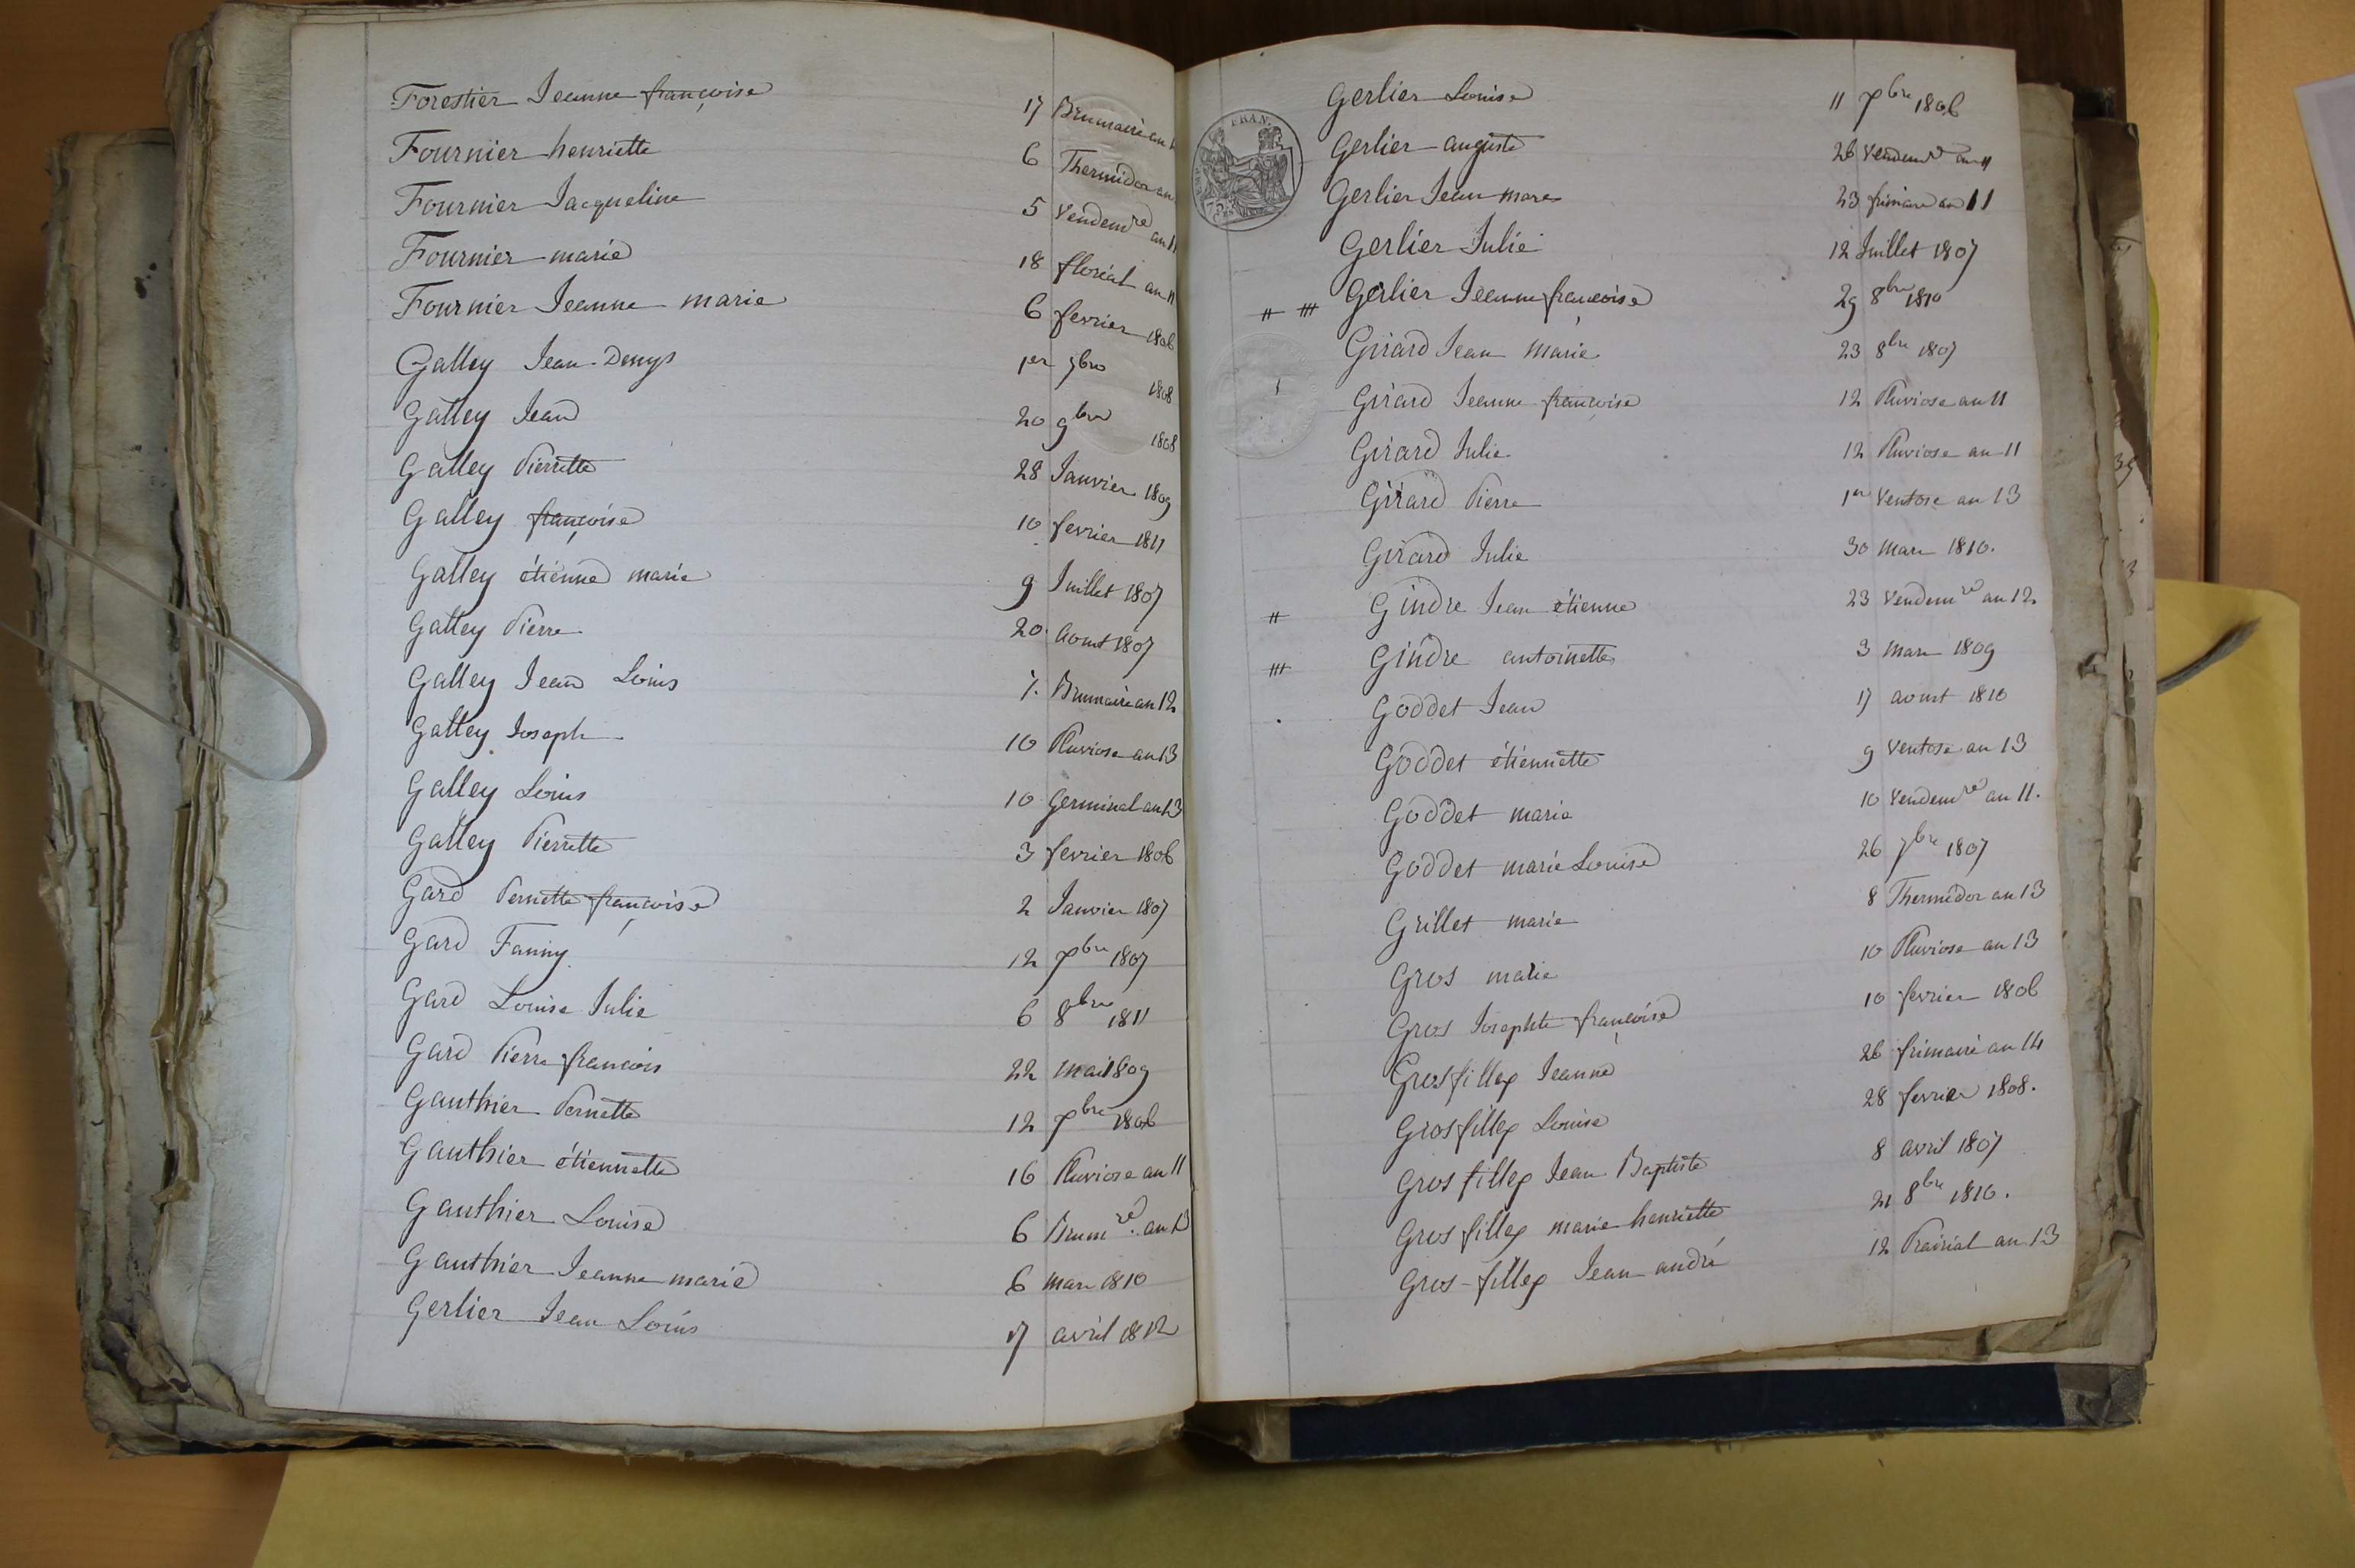 Forestier Jeanne françoise 17 Brumaire an
Fournier henriette 6 Thermidor an
Fournier Jacqueline 5 Vendemre an 11
Fournier marie 18 floréal an 11
Fournier Jeanne marie 6 fevrier 1806
Galley Jean-Denys 1er 9bre 1808
Galley Jean 20 9bre 1808
Galley Pierrette 28 Janvier 1809
Galley françoise 10 fevrier 1811
Galley étienne marie 9 Juillet 1807
Galley Pierre 20 Aoust 1807
Galley Jean Louis 7. Brumaire an 12
Galley Joseph 10 Pluviose an 13
Galley Louis 10 Germinal an 13
Galley Pierrette 3 fevrier 1806
Gard Pernette françoise 2 Janvier 1807
Gard Fanny 12 Xbre 1807
Gard Louise Julie 6 8bre 1811
Gard Pierre francois 22 mai 1809
Gauthier Pernette 12 Xbre 1806
Gauthier étiennette 16 Pluviose an 11
Gauthier Louise 6 Brumre. an 13
Gauthier Jeanne marie 6 mars 1810
Gerlier Jean Louis 17 avril 1812
FRAN.
Gerlier Louise 11 Xbre 1806
Gerlier auguste 26 Vendemre an 11
Gerlier Jean marc 23 frimaire an 11
Gerlier Julie 12 Juillet 1807
Gerlier Jeanne françoise 29 8bre 1810
Girard Jean Marie 23 8bre 1807
Girard Jeanne françoise 12 Pluviose an 11
Girard Julie 12 Pluviose an 11
Girard Pierre 1er Ventose an 13
Girard Julie 30 mars 1810.
Gindre Jean étienne 23 Vendemre an 12
Gindre antoinette 3 mars 1809
Goddet Jean 17 aoust 1810
Goddet étiennette 9 Ventose an 13
Goddet marie 10 Vendemre an 11.
Goddet marie Louise 26 7bre 1807
Grillet marie 8 Thermidor an 13
Gros marie 10 Pluviose an 13
Gros Josephte françoise 10 fevrier 1806
Grosfilley Jeanne 26 frimaire an 14
Grosfilley Louise 28 fevrier 1808.
Grosfilley Jean Baptiste 8 avril 1807
Grosfilley marie henriette 21 8bre 1810.
Gros-filley Jean andré 12 Prairial an 13